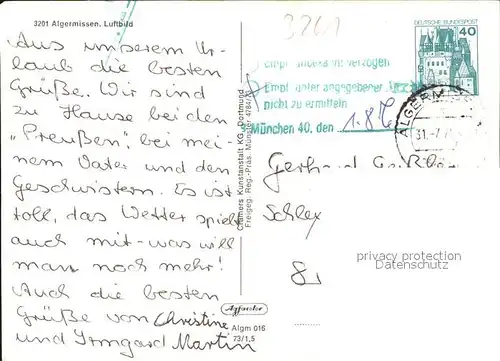 3201 Algermissen. Luftbild
3201
Aus unserem Ur-
laub die besten
Grüße. Wir sind
zu Hause bei den
„Preußen", bei mei-
nem Vater und den
Geschwistern. Es ist
toll, das Wetter spielt
auch mit - was will
man noch mehr!
Auch die besten
Grüße von Christine
und Irmgard Martin
Cramers Kunstanstalt KG, Dortmund
Freigeg. Reg.-Präs. Münster 4784/73
Algm 016
73/1,5
DEUTSCHE BUNDESPOST
40
verzogen
Empf. unter angegebener
nicht zu ermitteln
München 40, den 1.8.
ALGERM
31.-7.7
Gerhard
8
privacy protection
Datenschutz